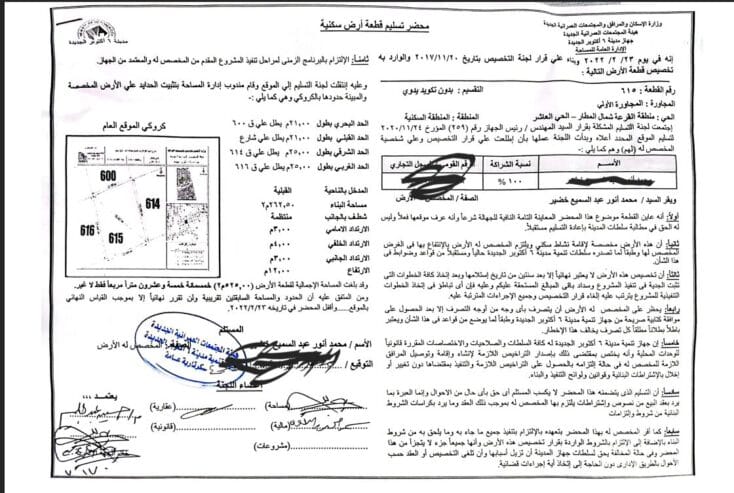 وزارة الاسكان والمرافق والمجتمعات العمرانية الجديدة
هيئة المجتمعات العمرانية الجديدة
جهاز مدينة ٦ أكتوبر الجديدة
الإدارة العامة للمساحة
محضر تسليم قطعة أرض سكنية
مدينة ٦ أكتوبر الجديدة
إنه في يوم ٢٣/ ٢/ ٢٠٢٢ وبناء علي قرار لجنة التخصيص بتاريخ ٢٠١٧/١١/٢٠ والوارد به
تخصيص قطعة الأرض التالية :
رقم القطعة : ٦١٥
التقسيم : بدون تكويد يدوي
المجاورة : المجاورة الأولي
الحي : منطقة القرعة شمال المطار - الحي العاشر
المنطقة : المنطقة السكنية
إجتمعت لجنة التسليم المشكلة بقرار السيد المهندس / رئيس الجهاز رقم (٢٥٦) المؤرخ ٢٠٢٠/١١/٢٤
لتسليم الموقع المحدد أعلاه وبدأت اللجنة عملها بأن إطلعت علي قرار التخصيص وعلي شخصية
المخصص له (لهم) وهم كما يلي :-
الأســم
رقم القومي
السجل التجاري
نسبة الشراكة
١٠٠ %
ويقر السيد / محمد أنور عبد السميع خضير
الصفة / المخصص له الأرض
أولاً: أنه عاين القطعة موضوع هذا المحضر المعاينة التامة النافية للجهالة شرعاً وأنه عرف موقعها فعلاً وليس
له الحق في مطالبة سلطات المدينة بإعادة التسليم مستقبلاً.
ثانياً: أن هذه الأرض مخصصة لإقامة نشاط سكني ويلتزم المخصص له الأرض بالإنتفاع بها في الغرض
المخصص لها وطبقاً لما تصدره سلطات تنمية مدينة ٦ أكتوبر الجديدة حالياً ومستقبلاً من قواعد وضوابط في
هذا الشأن.
ثالثاً: أن تخصيص هذه الأرض لا يعتبر نهائياً إلا بعد سنتين من تاريخ إستلامها وبعد إتخاذ كافة الخطوات التي
تثبت الجدية في تنفيذ المشروع وسداد باقي المبالغ المستحقة عليكم وعليه فإن أي تباطؤ في إتخاذ الخطوات
التنفيذية للمشروع يترتب عليه إلغاء قرار التخصيص وجميع الإجراءات المترتبة عليه.
رابعاً: يحظر على المخصص له الأرض أن يتصرف بأى وجه من أوجه التصرف إلا بعد الحصول على
موافقة كتابية صريحة من جهاز تنمية مدينة ٦ أكتوبر الجديدة وطبقاً لما يوضع من قواعد في هذا الشأن ويعتبر
باطلاً بطلاناً مطلقاً كل تصرف يخالف هذا الإخطار.
خامساً: أن جهاز تنمية مدينة ٦ أكتوبر الجديدة له كافة السلطات والصلاحيات والاختصاصات المقررة قانونياً
للوحدات المحلية وأنه يختص بمقتضى ذلك بإصدار التراخيص اللازمة لإنشاء وإقامة وتوصيل المرافق
اللازمة للمخصص له في حالة إلتزامه بالحصول على التراخيص اللازمة والتنفيذ بمقتضاها دون تغيير أو
إخلال بالإشتراطات البنائية وقوانين ولوائح التنفيذ والبناء.
سادساً: أن التسليم الذي يتضمنه هذا المحضر لا يكسب المستلم أي حق بأى حال من الأحوال وإنما العبرة بما
يرد بعقد البيع من نصوص وإشتراطات يلتزم بها المخصص له بموجب ذلك العقد وما يرد بكراسات الشروط
البنائية من شروط وإلتزامات
سابعاً: كما أقر المخصص له بهذا المحضر بتعهده بالإلتزام بتنفيذ جميع ما جاء به وما يلحق به من شروط
البناء بالإضافة إلى الإلتزام بالشروط الواردة بقرار تخصيص هذه الأرض وأنها جميعاً جزء لا يتجزأ من هذا
المحضر وفي حالة المخالفة يحق لسلطات جهاز المدينة أن تزيل أسبابها وأن تلغى التخصيص أو العقد حسب
الأحوال بالطريق الإدارى دون الحاجة إلى إتخاذ أية إجراءات قضائية.
ثامناً: الإلتزام بالبرنامج الزمنى لمراحل تنفيذ المشروع المقدم من المخصص له والمعتمد من الجهاز.
وعليه إنتقلت لجنة التسليم إلي الموقع وقام مندوب إدارة المساحة بتثبيت الحدايد علي الأرض المخصصة
والمبينة حدودها بالكروكي وهم كما يلي:-
كروكي الموقع العام
الحد البحري بطول ٢١,٠٠م يطل علي ق ٦٠٠
الحد القبلي بطول ٢١,٠٠م يطل علي شارع
الحد الشرقي بطول ٢٥,٠٠م يطل علي ق ٦١٤
الحد الغربي بطول ٢٥,٠٠م يطل علي ق ٦١٦
600
614
615
616
المدخل بالناحية القبلية
مساحة البناء ٢٦٢,٥٠م٢
شطف بالجانب منتظمة
الارتداد الامامي ٣,٠٠م
الارتداد الخلفي ٤,٠٠م
الارتداد الجانبي ٣,٠٠م
الارتفاع ١٢,٠٠م
وقد باغت المساحة الإجمالية لقطعة الأرض (٥٢٥,٠٠م٢) خمسمائة خمسة وعشرون متراً مربعاً فقط لا غير.
ومن المتفق عليه أن الحدود والمساحة السابقتين تقريبية ولن تقرر نهائياً إلا بموجب القياس النهائي
بالموقع.....وأقفل المحضر في تاريخه ٢٠٢٢/٢/٢٣.
المستلم
الأسم / محمد أنور عبد السميع خضير
المخصص له الأرض
التوقيع /
هيئة المجتمعات العمرانية الجديدة
تنمية مدينة ٦ أكتوبر الجديدة
سكرتارية عامة
أعضاء اللجنة
(مساحة)
(عقارية)
(مالية)
(قانونية)
(مشروعات)
يعتمد،،،